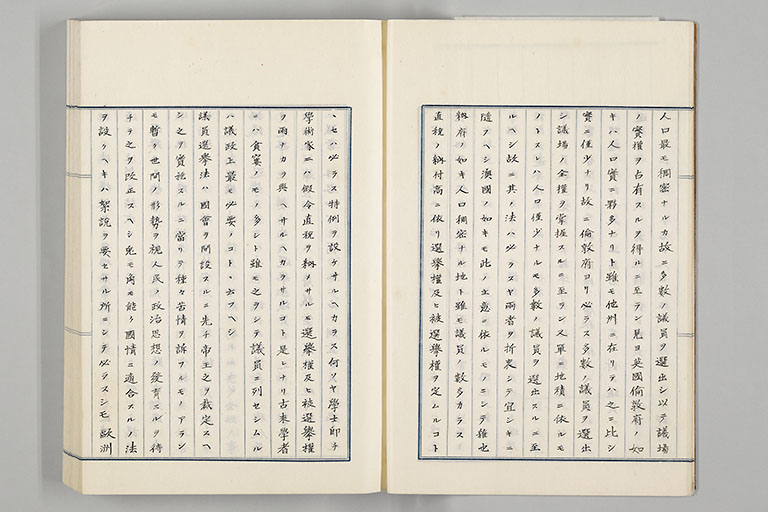 人口最モ稠密ナルカ故ニ多数ノ議員ヲ選出シ以テ議場
ノ實權ヲ占有スルヲ得ルニ至テン見ヨ英國倫敦府ノ如
キハ人口實ニ夥多ナリト雖モ他州ニ在リテハ之ニ比シ
實ニ僅少ナリ故ニ倫敦府ヨリ必ラス多数ノ議員ヲ選出
シ議場ノ全權ヲ掌握スルニ至ラン又單ニ地積ニ依ルモ
ノトスレハ人口僅少ナルモ多数ノ議員ヲ選出スルニ至
ルヘシ故ニ其ノ法ハ必ラスヤ兩者ヲ折衷シテ宜シキニ
隨フヘシ澳國ノ如キモ此ノ主意ニ依ルモノニシテ維也
納府ノ如キ人口稠密ナル地ト雖モ議員ノ數多カラス
直税ノ納付高ニ依リ選擧權及ヒ被選擧權ヲ定ムルコト
、セハ必ラス特例ヲ設ケサルヘカラス何ソヤ學士即チ
學術家ニハ假令直税ヲ納メサルモ選擧權及ヒ被選擧權
ヲ兩ナカラ與ヘサルヘカラサルコト是レナリ古来學者
ニハ貪窶ノモノ多シト雖モ之ヲシテ議員ニ列セシムル
ハ議政上最モ必要ノコト、云フヘシ
議員選擧法ハ國會ヲ開設スルニ先チ帝王之ヲ裁定スヘ
シ之ヲ實施スルニ當リテ種々苦情ヲ訴フルモノアラン
モ暫ク世間ノ形勢ヲ視人民ノ政治思想ノ發育スルヲ待
チテ之ヲ改正スヘシ兎モ角モ能ク國情ニ適合スルノ法
ヲ設クヘキハ絮説ヲ要セサル所ニシテ必ラスシモ歐洲